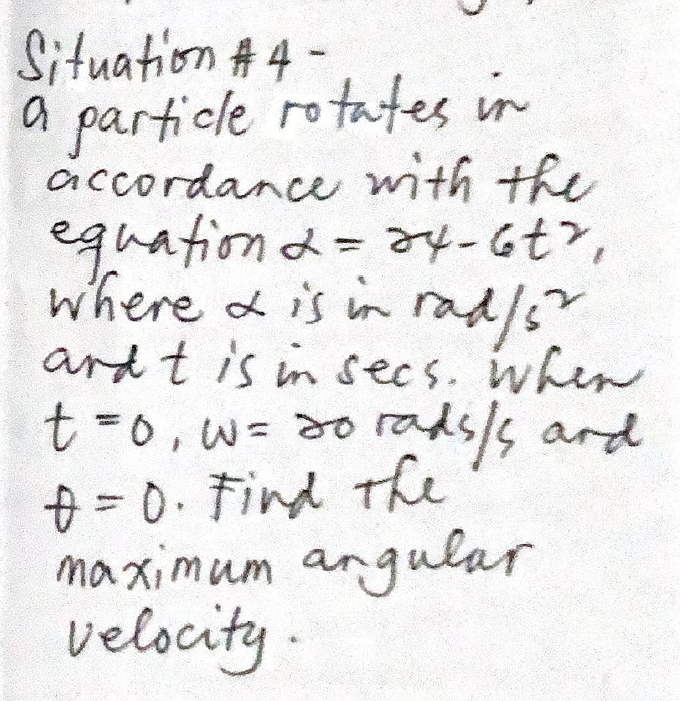 Situation #4 -
a particle rotates in
accordance with the
equation α = 24-6t²,
where α is in rad/s²
and t is in secs. When
t=0, ω= 20 rads/s and
θ = 0. Find the
maximum angular
velocity.